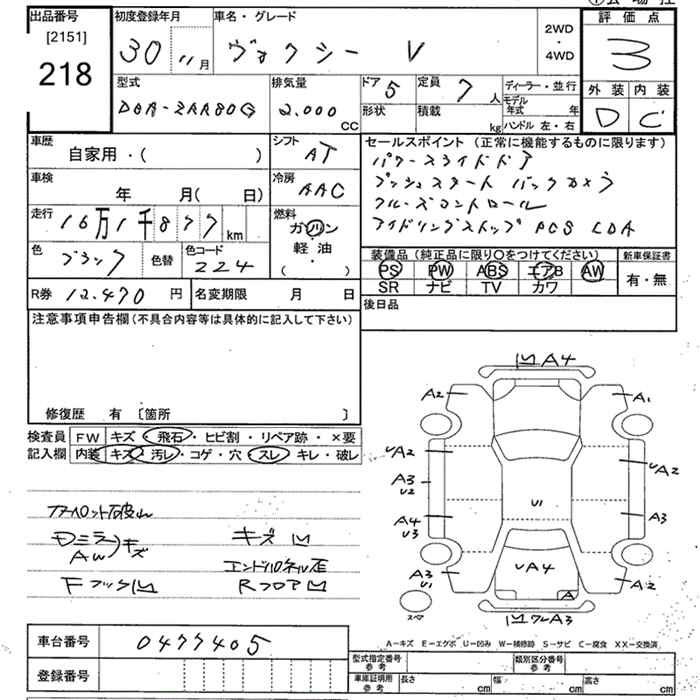 出品番号 初度登録年月 車名・グレード 評価点
[2151]
218 30 11月 ヴォクシー V 2WD・4WD 3
型式 排気量 ドア 5 定員 7人 ディーラー・並行 外装 内装
DBA-ZRR80G 2.000 CC 形状 積載 kg モデル年式 年 D C
ハンドル 左・右
車歴 シフト セールスポイント (正常に機能するものに限ります)
自家用・( ) AT パワースライドドア
車検 冷房 プッシュスタート バックカメラ
年 月( 日) AAC クルーズコントロール
走行 16万1千877km 燃料 アイドリングストップ PCS LDA
ガソリン
軽油
・
( )
色 ブラック 色替 色コード 224 装備品 (純正品に限り○をつけてください) 新車保証書
PS PW ABS エアB AW 有・無
R券 12.470 円 名変期限 月 日 SR ナビ TV カワ
注意事項申告欄(不具合内容等は具体的に記入して下さい) 後日品
修復歴 有 [箇所 ]
検査員 FW キズ・飛石・ヒビ割・リペア跡・×要
記入欄 内装 キズ・汚レ・コゲ・穴・スレ・キレ・破レ
凹A4
A2 A1
UA2 UA2
A3
U2
U1
A4 A3
U3
UA4
A3 A2
U1
A
スペア
凹ワレA3
キズ 凹
Dミラー
AW キズ
エンドパネル歪
Fフック凹 Rフロア凹
A-キズ E-エクボ U-凹み W-補修跡 S-サビ C-腐食 XX-交換済
車台番号 0477405 型式指定番号 参考 類別区分番号 参考
登録番号 車庫証明用 参考 長さ cm 幅 cm 高さ cm